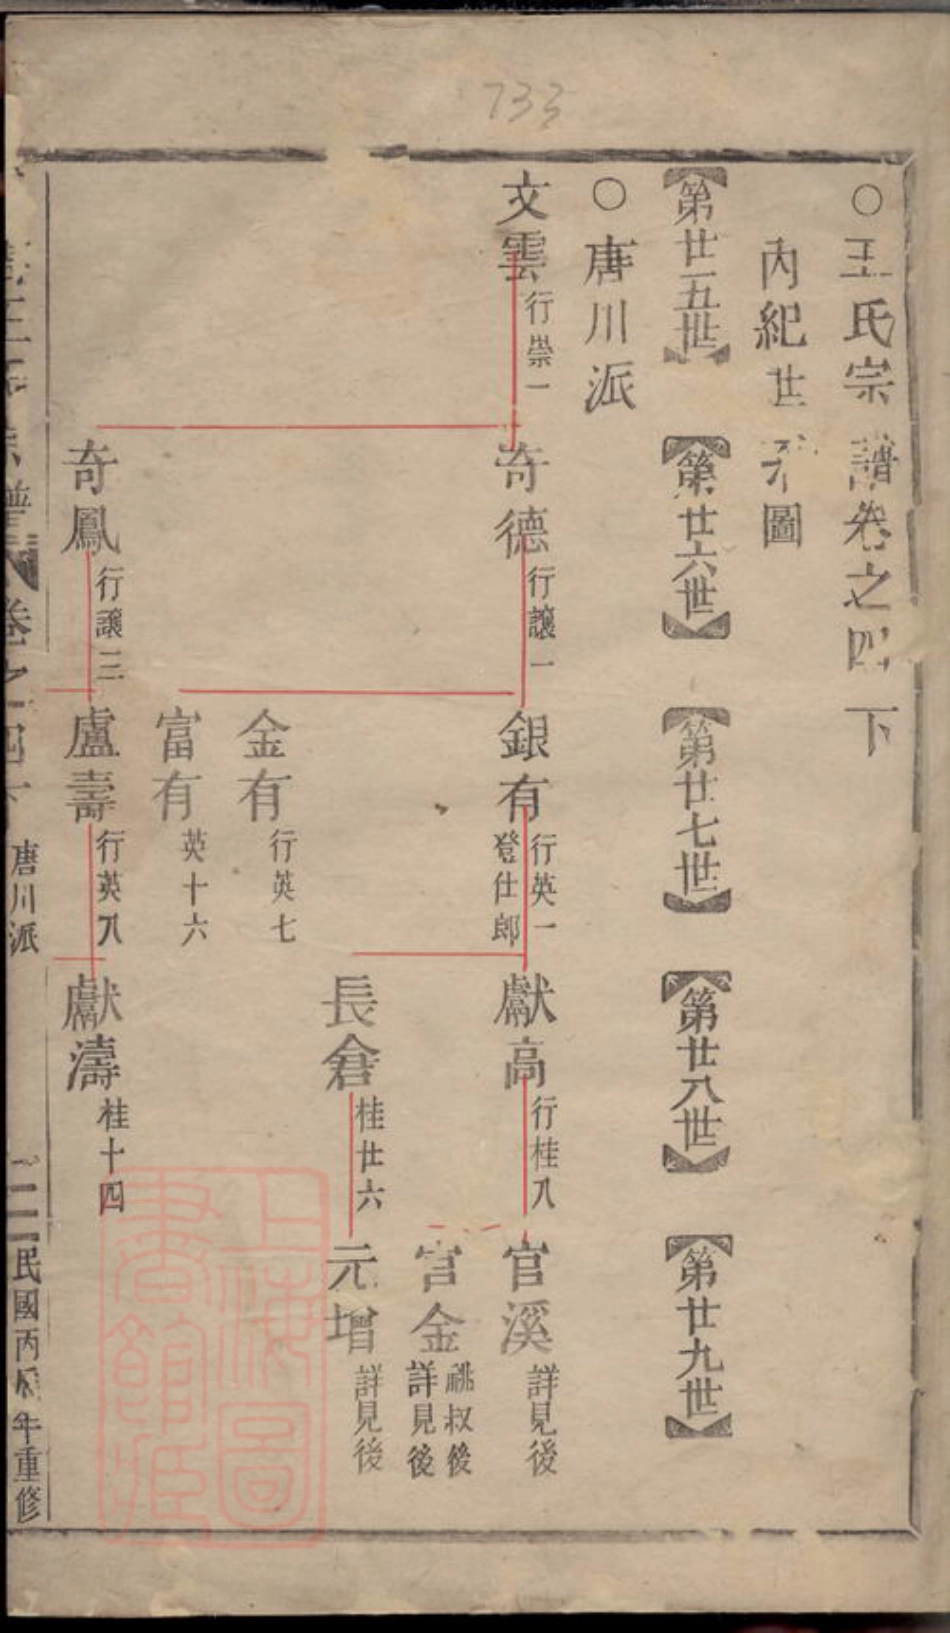 733
○王氏宗譜卷之四下
內紀世系圖
【第廿五世】
【第廿六世】
【第廿七世】
【第廿八世】
【第廿九世】
○唐川派
文雲 行崇一
奇德 行讓一
銀有 行英一
登仕郎
獻高 行桂八
官溪 詳見後
官金 祧叔後
詳見後
長倉 桂廿六
元增 詳見後
金有 行英七
富有 英十六
奇鳳 行讓三
盧壽 行英八
獻濤 桂十四
王氏宗譜 卷之四下 唐川派 一 民國丙年重修
上海圖
書館藏